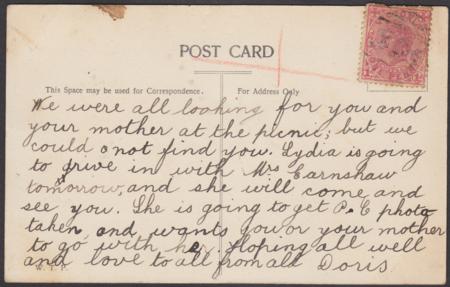 POST CARD
This Space may be used for Correspondence.
For Address Only
We were all looking for you and
your mother at the picnic; but we
could not find you. Lydia is going
to drive in with Mrs Earnshaw
tomorrow, and she will come and
see you. She is going to get P.C photo
taken, and wants you or your mother
to go with her. Hoping all well
and love to all from all Doris
W.T.P.